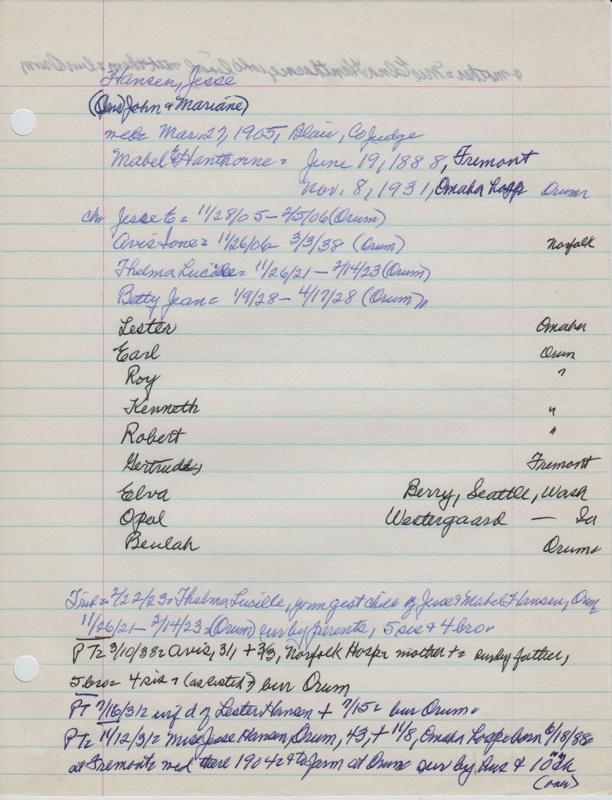 Hansen, Jesse
(Jens John & Mariane)
md= Mar. 27, 1905, Blair, Co Judge
Mabel E Hanthorne = June 19, 1888, Fremont
Nov. 8, 1931, Omaha hosp Orum
ch= Jesse E = 11/28/05 - 2/5/06 (Orum)
Avis Ione = 11/26/06 3/3/38 (Orum) Norfolk
Thelma Lucille = 11/26/21 - 2/14/23 (Orum)
Betty Jean = 1/9/28 - 4/17/28 (Orum)
Lester Omaha
Earl Orum
Roy "
Kenneth "
Robert "
Gertrude Fremont
Elva Berry, Seattle, Wash
Opal Westergaard — Ia
Beulah Orum
Trib= 2/22/23= Thelma Lucille, youngest child of Jesse & Mabel Hansen, Orum
11/26/21 - 2/14/23= (Orum) sur by parents, 5 sis & 4 bro
PT= 3/10/38= Avis, 31, + 3/3, Norfolk Hosp= mother += sur by father,
5 bro= 4 sis = (as listed) bur Orum
PT 7/16/31= inf d of Lester Hansen + 7/15= bur Orum
PT= 11/12/31= Mrs Jesse Hansen, Orum, 43, + 11/8, Omaha Hosp= born 6/18/88
at Fremont= md there 1904= to farm at Orum sur by hus & 10 ch
(over)